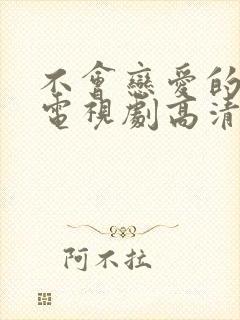 不會戀愛的
電視劇高清
阿不拉